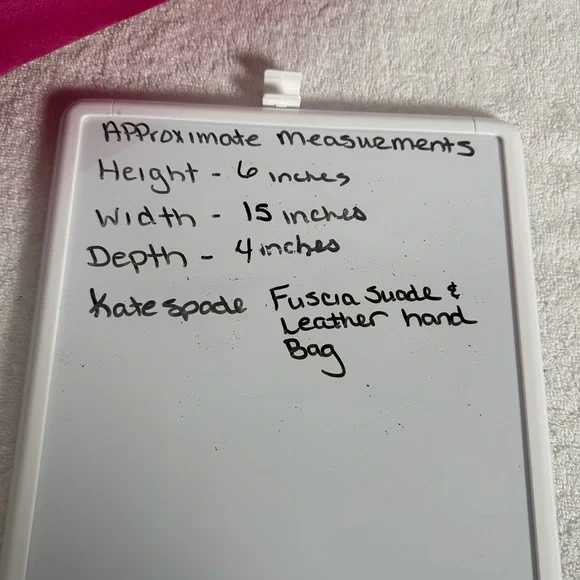 Approximate measuements
Height - 6 inches
Width - 15 inches
Depth - 4 inches
Kate spade Fuscia Suade &
Leather hand
Bag